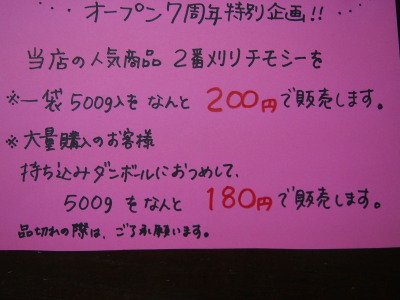 オープン7周年特別企画!!
当店の人気商品 2番メリリチモシーを
※一袋500g入を なんと 200円で販売します。
※大量購入のお客様
持ち込みダンボールにおつめして、
500g をなんと 180円で販売します。
品切れの際は、ご了承願います。